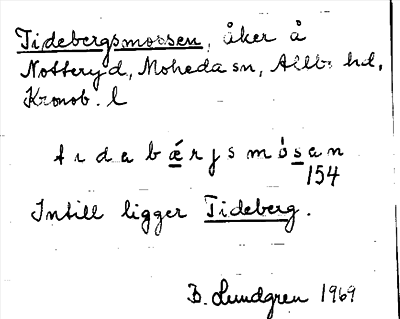 Tidebergsmossen, åker å
Notteryd, Moheda sn, Allbo hd,
Kronob. l
tidabǽrjsmósan
154
Intill ligger Tideberg.
B. Lundgren 1969